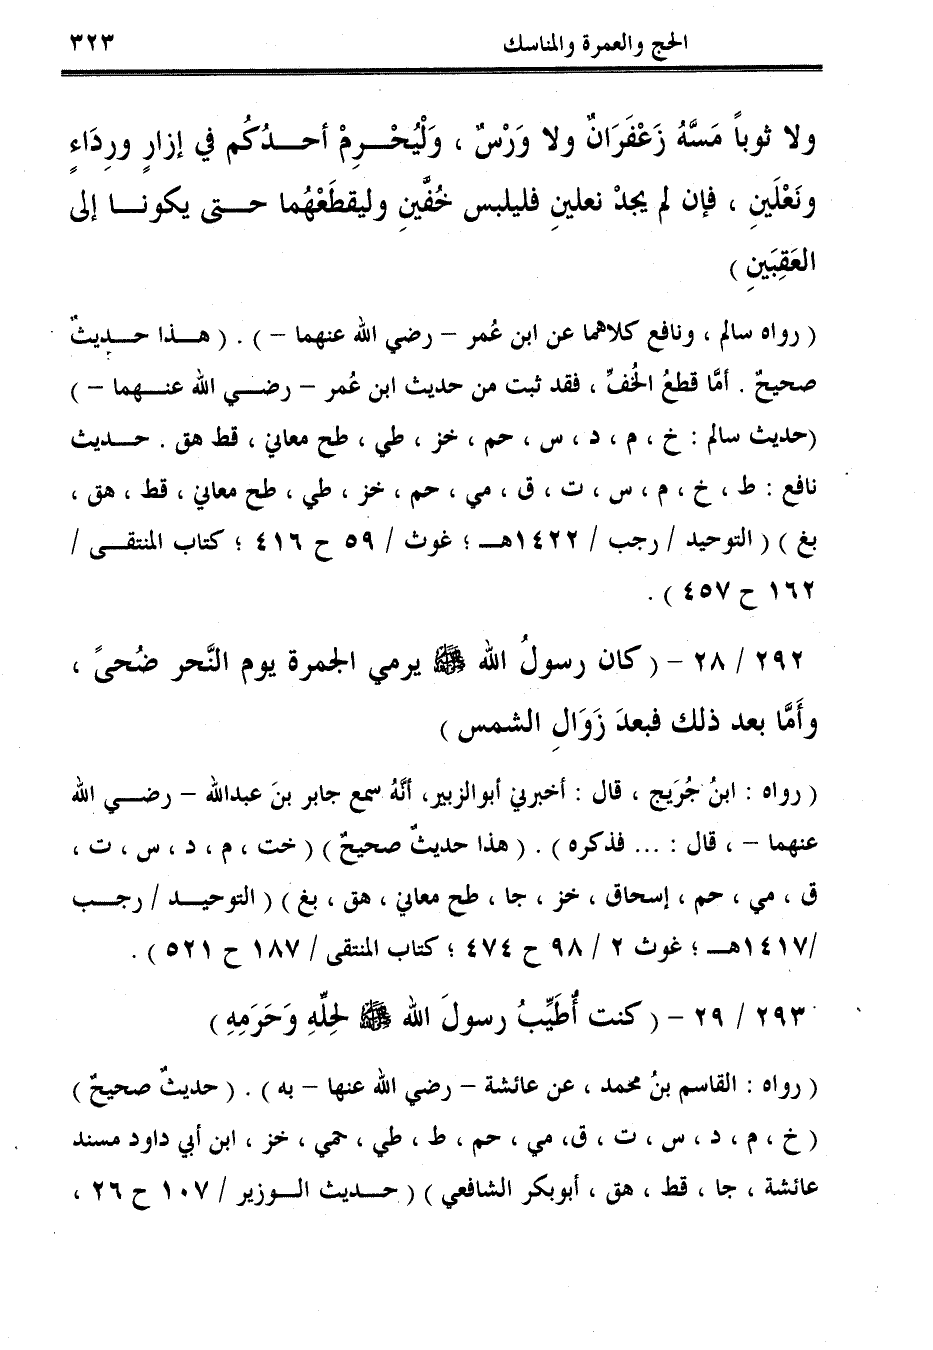 الحج والعمرة والمناسك ٣٢٣
ولا ثوباً مَسَّهُ زَعْفَرَانٌ ولا وَرْسٌ ، وَلْيُحْرِمْ أحدُكُم في إزارٍ ورِدَاءٍ
ونَعْلَينِ ، فإن لم يجدْ نعلينِ فليلبس خُفَّينِ وليقطَعْهُما حتى يكونا إلى
العَقِبَينِ )
( رواه سالم ، ونافع كلاهما عن ابن عُمر – رضي الله عنهما – ) . ( هذا حديثٌ
صحيحٌ . أمَّا قطعُ الخُفِّ ، فقد ثبت من حديث ابن عُمر – رضي الله عنهما – )
(حديث سالم : خ ، م ، د ، س ، حم ، خز ، طي ، طح معاني ، قط هق . حديث
نافع : ط ، خ ، م ، س ، ت ، ق ، مي ، حم ، خز ، طي ، طح معاني ، قط ، هق ،
بغ ) ( التوحيد / رجب / ١٤٢٢هـ ؛ غوث / ٥٩ ح ٤١٦ ؛ كتاب المنتقى /
١٦٢ ح ٤٥٧ ) .
٢٩٢ / ٢٨ – ( كان رسولُ الله ﷺ يرمي الجمرة يوم النَّحر ضُحىً ،
وأَمَّا بعد ذلك فبعدَ زَوَالِ الشمس )
( رواه : ابنُ جُرَيج ، قال : أخبرني أبوالزبير، أنَّهُ سمع جابر بنَ عبدالله – رضي الله
عنهما – ، قال : ... فذكره ) . ( هذا حديثٌ صحيحٌ ) ( خت ، م ، د ، س ، ت ،
ق ، مي ، حم ، إسحاق ، خز ، جا ، طح معاني ، هق ، بغ ) ( التوحيد / رجب
/١٤١٧هـ ؛ غوث ٢ / ٩٨ ح ٤٧٤ ؛ كتاب المنتقى / ١٨٧ ح ٥٢١ ) .
٢٩٣ / ٢٩ – ( كنت أُطَيِّبُ رسولَ الله ﷺ لحِلِّهِ وَحَرَمِهِ )
( رواه : القاسم بنُ محمد ، عن عائشة – رضي الله عنها – به ) . ( حديثٌ صحيحٌ )
( خ ، م ، د ، س ، ت ، ق، مي ، حم ، ط ، طي ، حمي ، خز ، ابن أبي داود مسند
عائشة ، جا ، قط ، هق ، أبوبكر الشافعي ) ( حديث الوزير / ١٠٧ ح ٢٦ ،